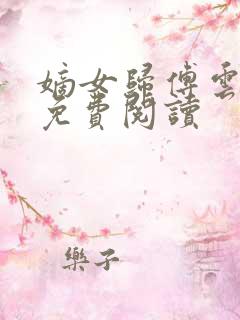 嫡女歸傅雲
免費閱讀
樂子